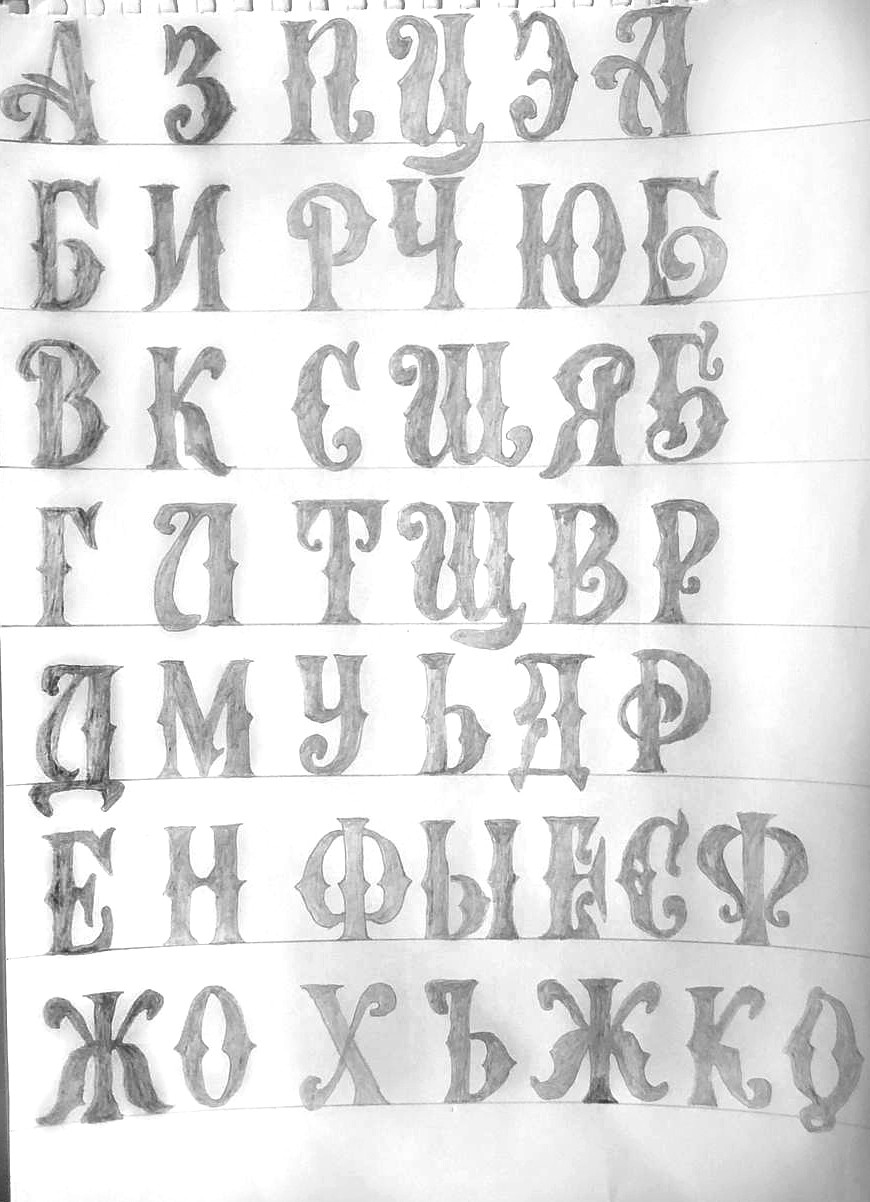 А З П Ц Э А
Б И Р Ч Ю Б
В К С Ш Я Б
Г Л Т Щ В Р
Д М У Ь Д Р
Е Н Ф Ы Е С Ф
Ж О Х Ъ Ж К О